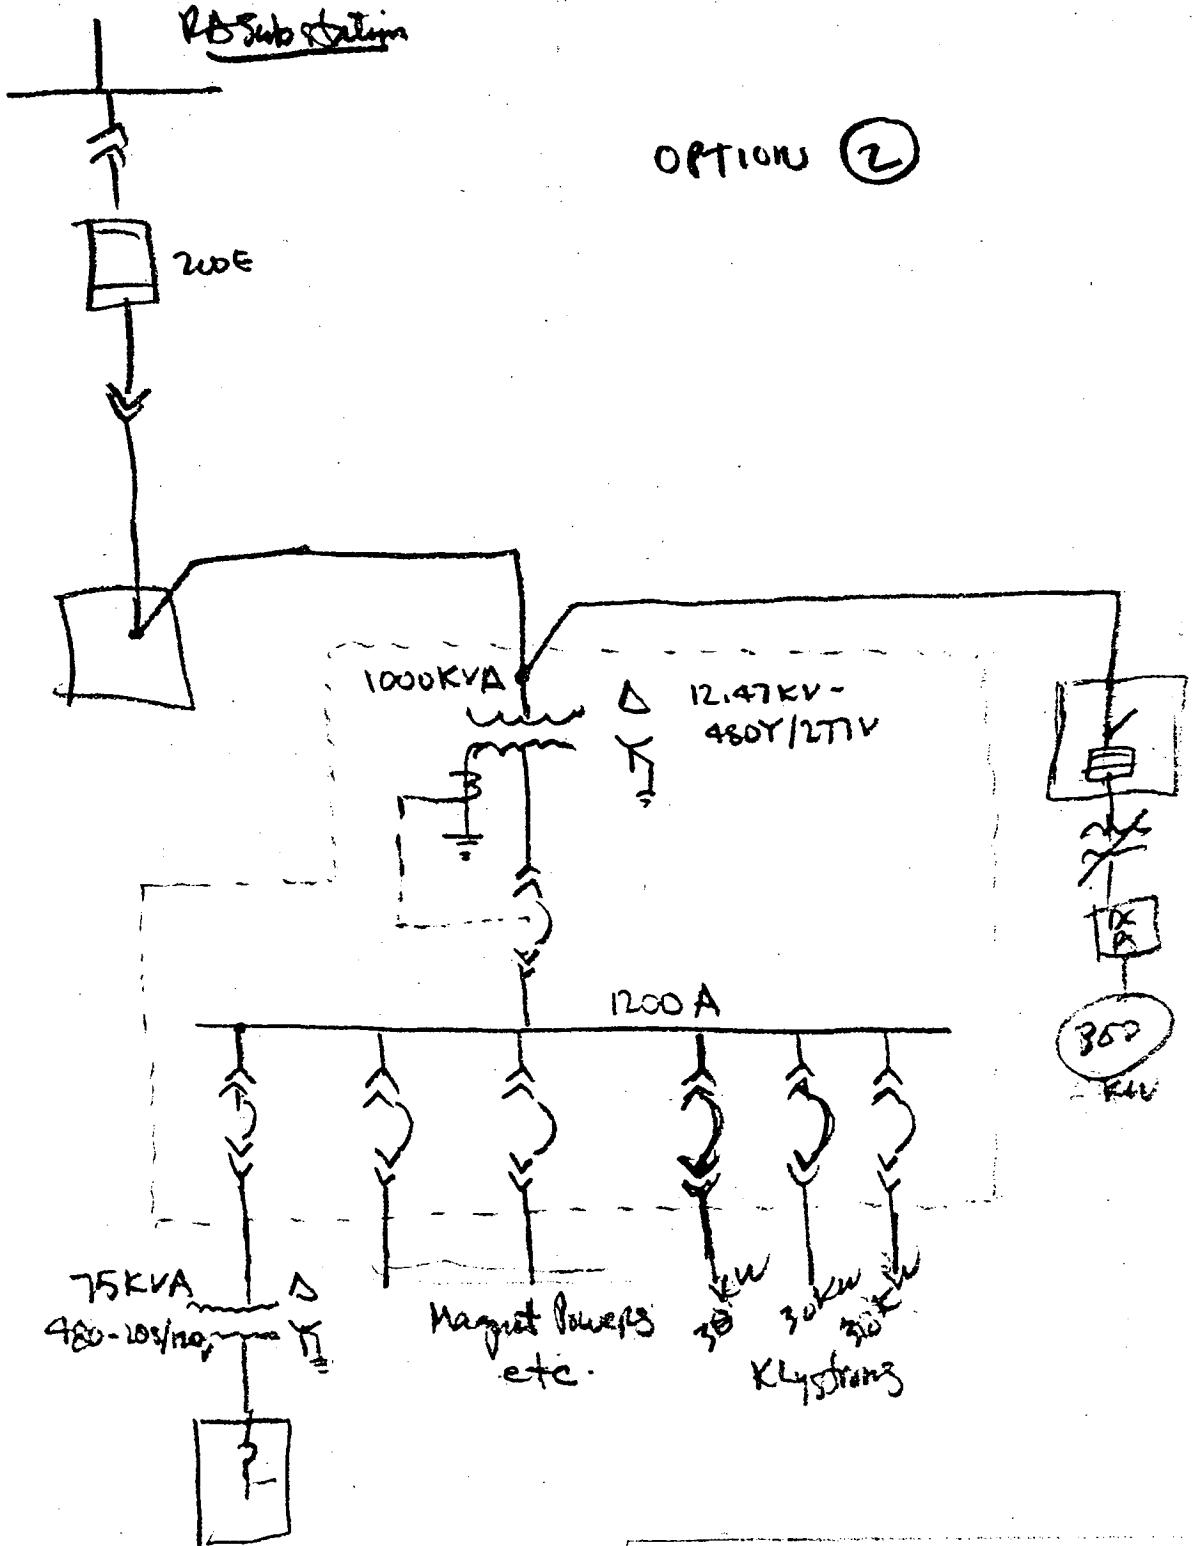 Substation
OPTION 2
200E
1000KVA
Δ 12.47KV-
480Y/277V
1200A
350
KW
75KVA Δ
480-208/120V
Magnet Powers
etc.
30KW 30KW 30KW
Klystrons